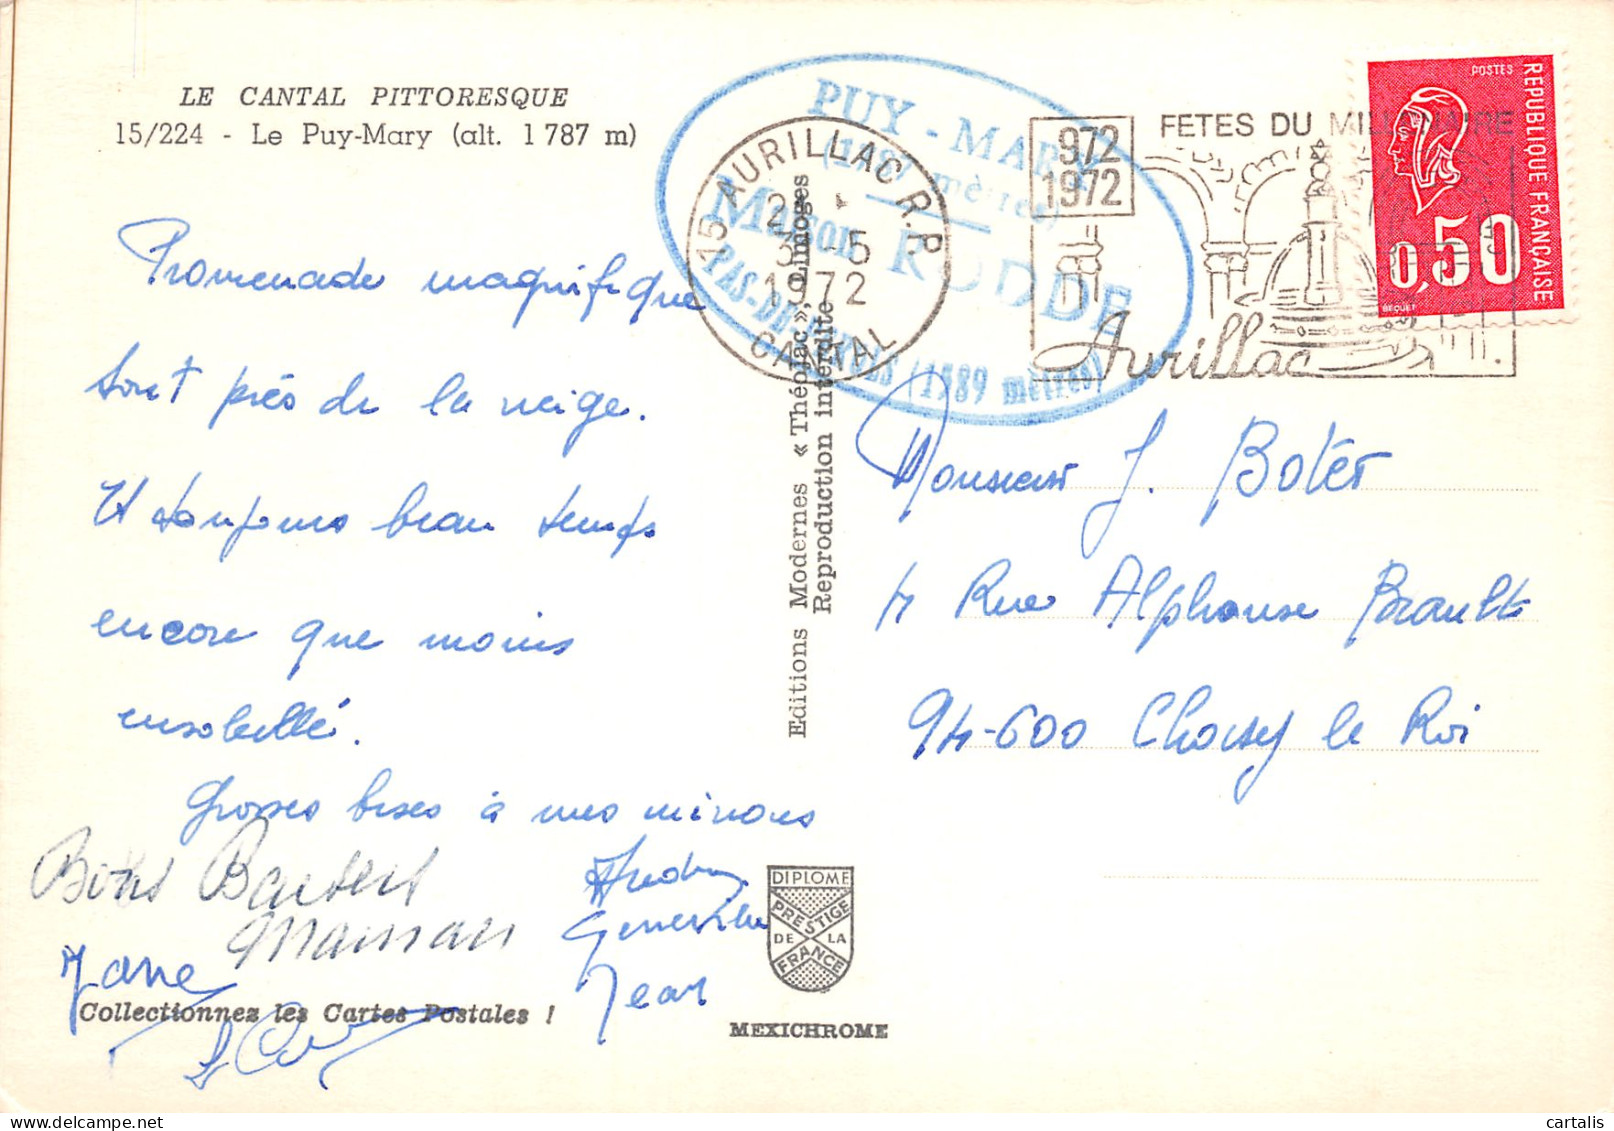 LE CANTAL PITTORESQUE
15/224 - Le Puy-Mary (alt. 1 787 m)
Promenade magnifique
tout près de la neige.
Et toujours beau temps
encore que moins
ensoleillé.
Grosses bises à mes minous
Bons Baisers
Maman
Geneviève
Jean
Collectionnez les Cartes Postales !
Editions Modernes « Théojac », Limoges
Reproduction interdite
DIPLOME
PRESTIGE
DE LA
FRANCE
MEXICHROME
PUY-MARY
(1787 mètres)
Maison RODDE
PAS-DE-PEYROL (1589 mètres)
15 AURILLAC R.P.
3 -5
1972
CANTAL
972
1972
FETES DU MILLENAIRE
Aurillac
POSTES
REPUBLIQUE FRANÇAISE
0,50
BEQUET
Monsieur J. Boter
4 Rue Alphonse Brault
94-600 Choisy le Roi
cartalis